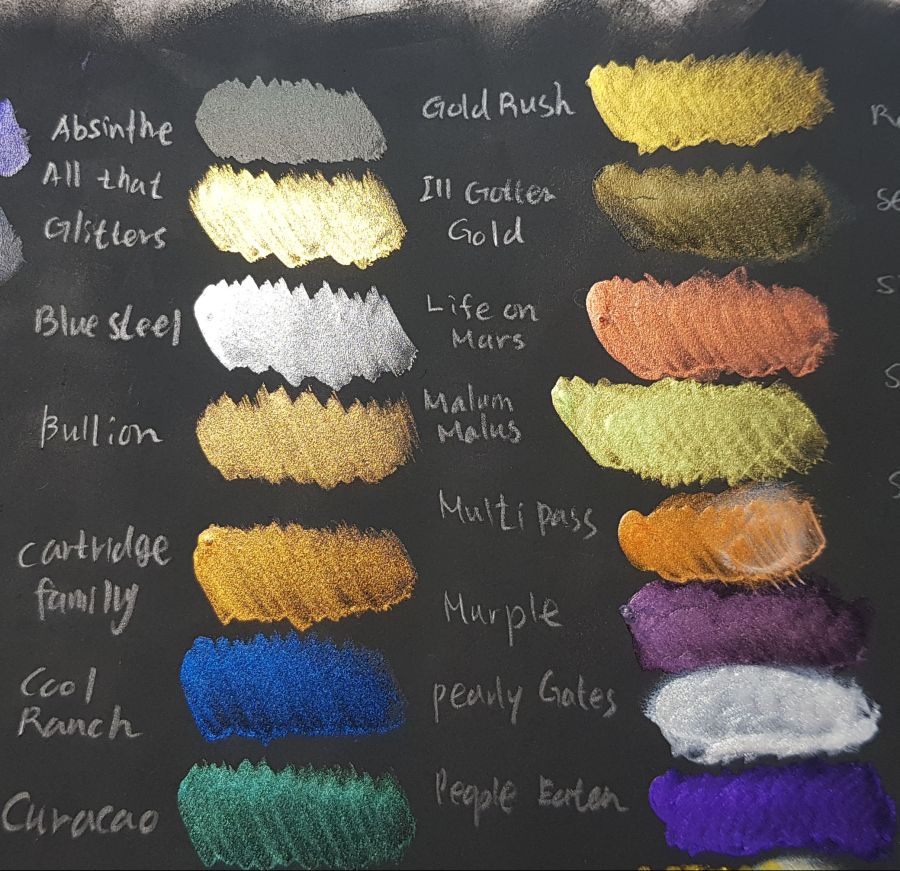 Absinthe
All that
Glitters
Blue steel
Bullion
Cartridge
family
Cool
Ranch
Curacao
Gold Rush
Ill Gotten
Gold
Life on
Mars
Malum
Malus
Multi pass
Murple
pearly Gates
People Eater